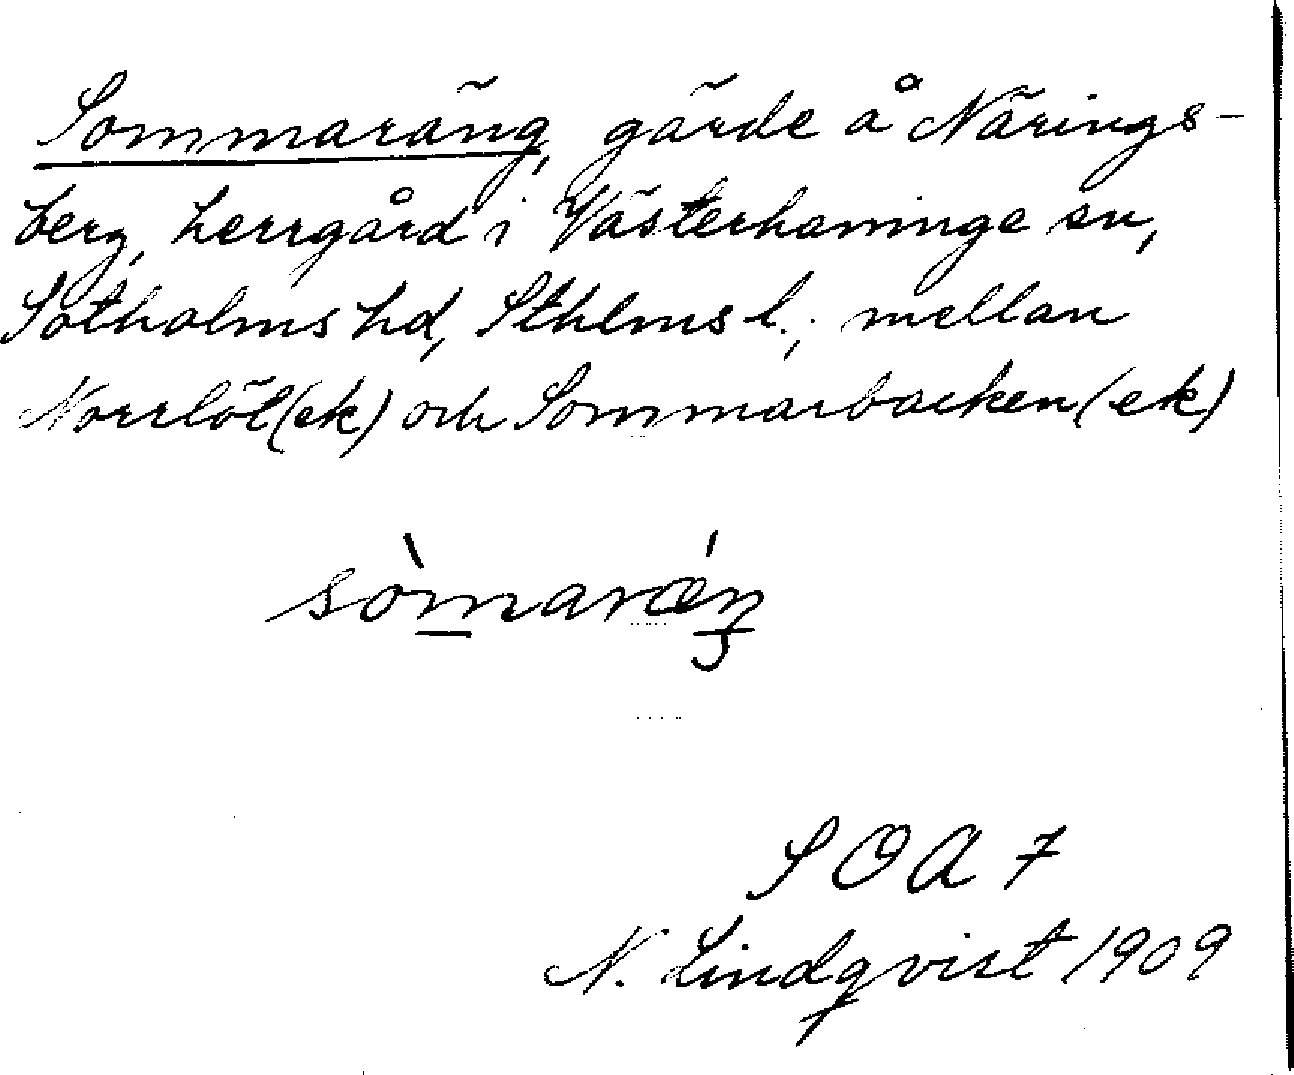 Sommaräng, gärde å Närings-
berg, herrgård i Västerhaninge sn,
Sotholms hd, Sthlms l.; mellan
Norrlöt (ek) och Sommarbacken (ek)
sòmarǽŋ
SOA 7
N. Lindqvist 1909